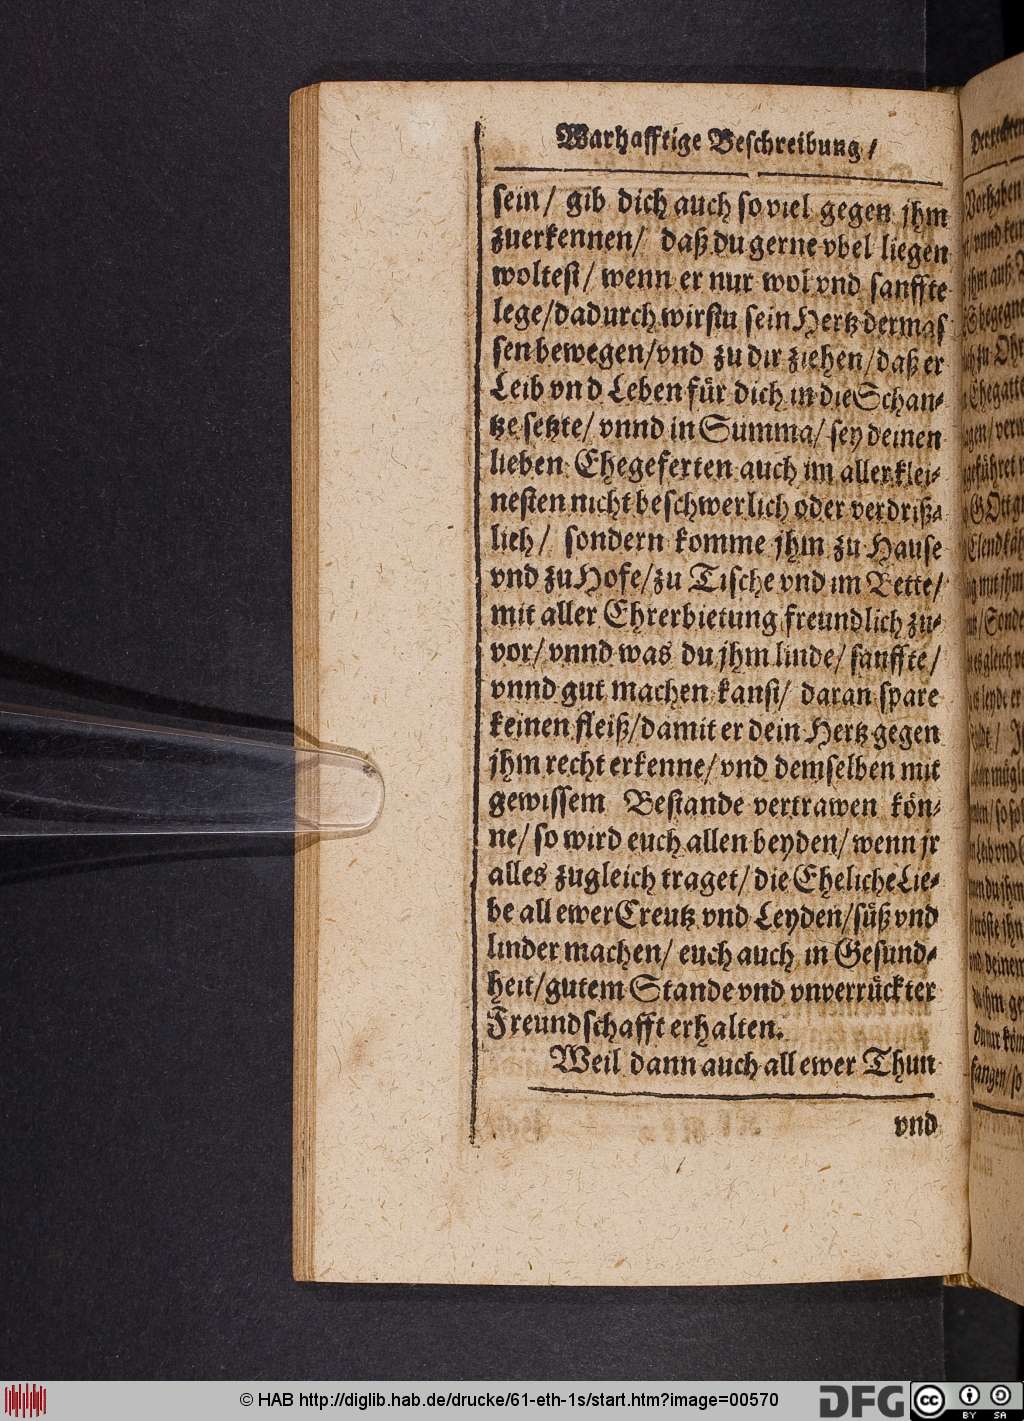 Warhafftige Beschreibung /
sein / gib dich auch so viel gegen jhm
zuerkennen / daß du gerne vbel liegen
woltest / wenn er nur wol vnd sanffte
lege / dadurch wirstu sein Hertz dermas
sen bewegen / vnd zu dir ziehen / daß er
Leib vnd Leben für dich in die Schan-
tze setzte / vnnd in Summa / sey deinen
lieben Ehegeferten auch im aller klei-
nesten nicht beschwerlich oder verdriß-
lich / sondern komme jhm zu Hause
vnd zu Hofe / zu Tische vnd im Bette /
mit aller Ehrerbietung freundlich zu-
vor / vnnd was du jhm linde / sanffte /
vnnd gut machen kanst / daran spare
keinen fleiß / damit er dein Hertz gegen
jhm recht erkenne / vnd demselben mit
gewissem Bestande vertrawen kön-
ne / so wird euch allen beyden / wenn jr
alles zugleich traget / die Eheliche Lie-
be all ewer Creutz vnd Leyden / süß vnd
linder machen / euch auch in Gesund-
heit / gutem Stande vnd vnverrückter
Freundschafft erhalten.
Weil dann auch all ewer Thun
vnd
© HAB http://diglib.hab.de/drucke/61-eth-1s/start.htm?image=00570
DFG
cc BY SA